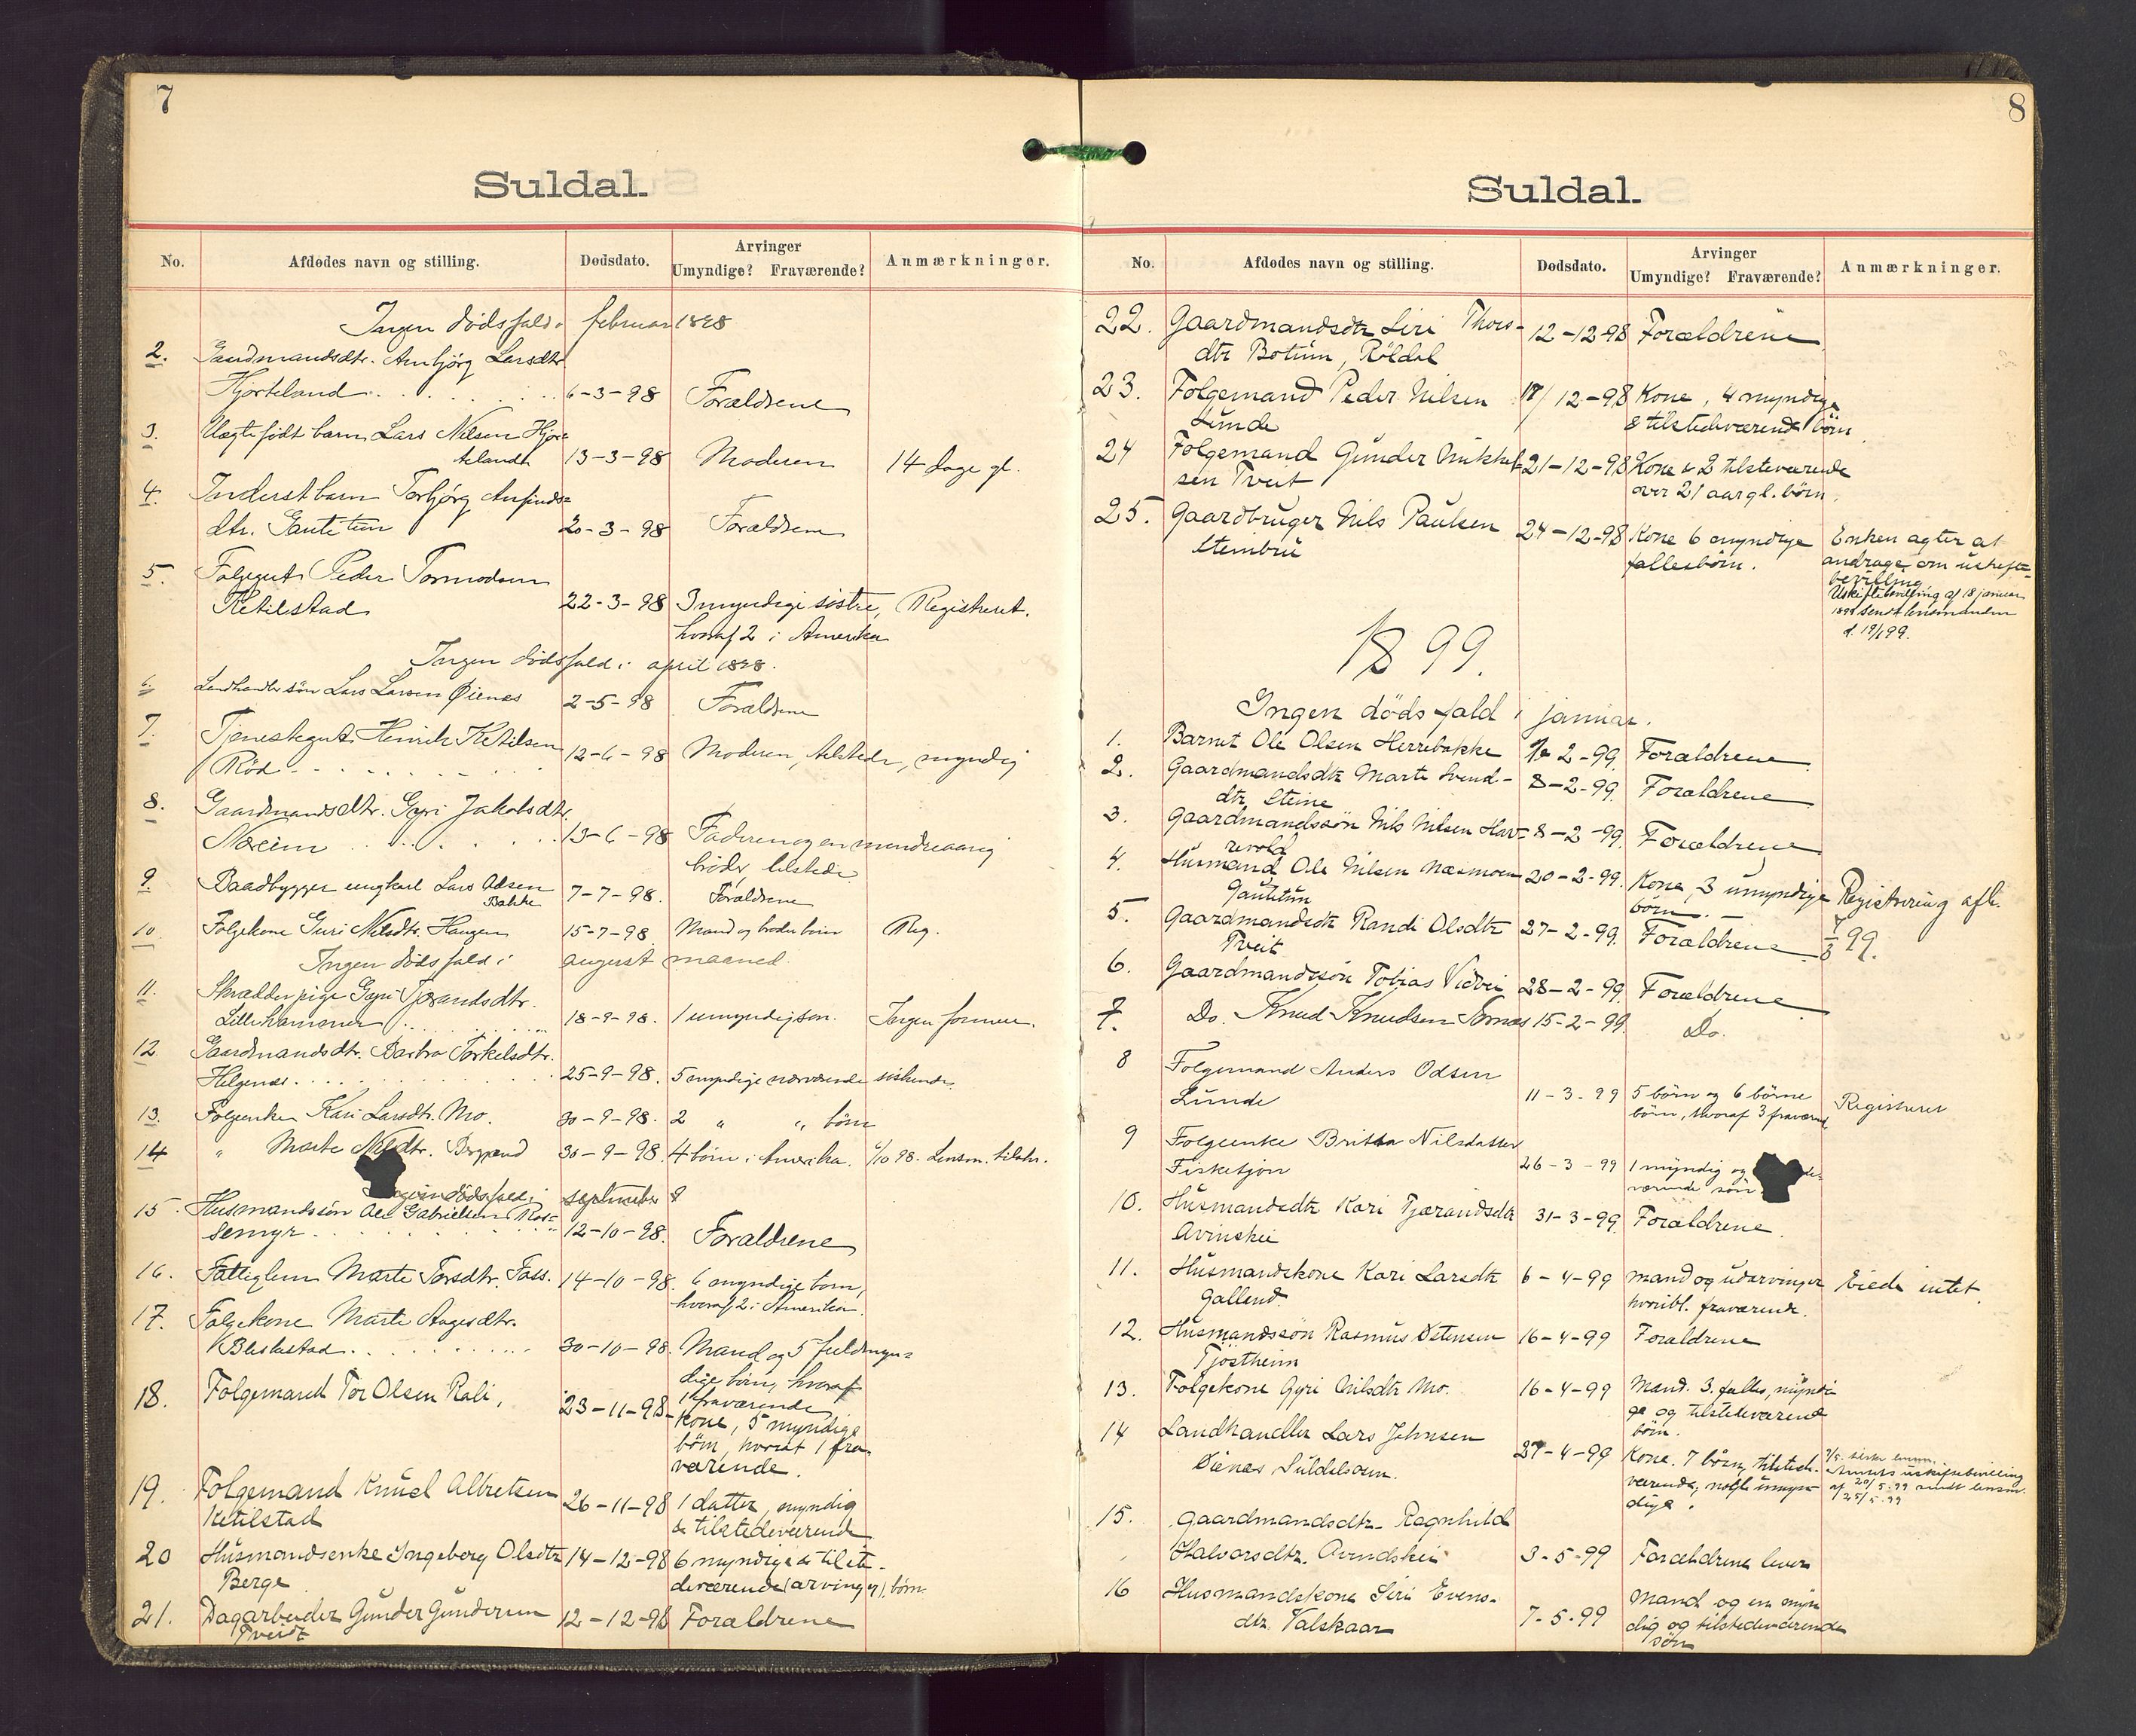 7
Suldal.
No. Afdødes navn og stilling. Dødsdato. Arvinger Umyndige? Fraværende? Anmærkninger.
Ingen dödsfald i februar 1898
2. Gaardmandsdtr. Anbjörg Larsdtr.
Hjorteland 6-3-98 Forældrene
3. Uægte födt barn Lars Nilsen Hjor-
telandt 13-3-98 Moderen 14 dage gl.
4. Inderst barn Torbjörg Anfinds-
dtr. Gautetun 20-3-98 Forældrene
5. Folgegut Peder Tormodsen
Ketilstad 22-3-98 3 myndige söstre, Registreret.
hvoraf 2 i Amerika
Ingen dödsfald i april 1898.
6. Landhandler sön Lars Larsen Øienæs 2-5-98 Forældrene
7. Tjenestegut Henrik Ketilsen
Röd 12-6-98 Moderen, tilstede, myndig
8. Gaardmandsdtr. Gyri Jakobsdtr.
Næreim 13-6-98 Faderen og en mindreaarig
broder, tilstede
9. Baadbygger ungkarl Lars Odsen
Bakke 7-7-98. Forældrene
10. Folgekone Guri Nilsdtr. Haugen 15-7-98 Mand og broder börn Reg.
Ingen dödsfald i august maaned.
11. Skrædder pige Gyri Tjerandsdtr.
Lillehammer 18-9-98. 1 umyndig sön. Ingen formue.
12. Gaardmandsdtr. Barbra Torkelsdtr.
Helgenæs 25-9-98. 5 myndige nærværende söskende
13. Folgeenke Kari Larsdtr. Mo. 30-9-98. 2 " " börn
14 " Marte Nilsdtr. 30-9-98. 4 börn i Amerika. 6/10 98. Lensm. tilskr.
Ingen dödsfald i september
15. Husmandssön Ole Gabrielsen Ros-
semyr 12-10-98. Forældrene
16. Fattiglem Marte Torsdtr. Foss. 14-10-98. 6 myndige börn,
hvoraf 2 i Amerika.
17. Folgekone Marte Aagesdtr.
Bleskestad 30-10-98. Mand og 5 fuldmyn-
dige börn, hvoraf
1 fraværende
18. Folgemand Tor Olsen Rali, 23-11-98- Kone, 5 myndige
börn, hvoraf 1 fra
værende.
19. Folgemand Knud Albretsen 26-11-98 1 datter, myndig
Ketilstad & tilstedeværende
20 Husmandsenke Ingeborg Olsdtr 14-12-98 6 myndige & tilste-
Berge deværende (arvinger) börn
21. Dagarbeider Gunder Gundersen 12-12-98 Forældrene
Tveit
8
Suldal.
No. Afdødes navn og stilling. Dødsdato. Arvinger Umyndige? Fraværende? Anmærkninger.
22. Gaardmandsdtr Siri Thors- 12-12-98 Forældrene
dtr Botnin, Röldal
23. Folgemand Peder Nilsen 17/12-98 Kone, 4 myndige
Lunde & tilstedeværende börn
24 Folgemand Gunder Mikkel- 21-12-98 Kone & 2 tilsteværende
sen Tveit over 21 aar gl. börn.
25. Gaardbruger Nils Paulsen 24-12-98 Kone 6 myndige Enken agter at
Steinbru fællesbörn. andrage om uskifte-
bevilling.
Uskiftebevilling af 18 januar
1899 sendt lensmanden
d. 19/1 99.
1899.
Ingen dödsfald i januar.
1. Barnet Ole Olsen Herrebakke 2-99. Forældrene
2. Gaardmandsdtr Marte Svend- 8-2-99. Forældrene
dtr. Steine
3. Gaardmandssön Nils Nilsen Hav- 8-2-99. Forældrene
revold
4. Husmand Ole Nilsen Næsmoen 20-2-99. Kone, 3 umyndige Registrering afh.
Gautetun börn. 7/3 99.
5. Gaardmandsdtr Randi Olsdtr 27-2-99. Forældrene
Tveit
6. Gaardmandssön Tobias Vidvei 28-2-99. Forældrene
7. Do. Knud Knudsen 15-2-99. Do.
8 Folgemand Anders Odsen
Lunde 11-3-99 5 börn og 6 börne Registreret
börn, hvoraf 3 fraværend
9 Folgeenke Britta Nilsdatter
Fisketjön 26-3-99 1 myndig og
værende sön
10. Husmandsdtr Kari Tjerandsdtr 31-3-99. Forældrene.
11. Husmandskone Kari Larsdtr 6-4-99 mand og udarvinger Eiede intet.
Gallend. hvoribl. fraværende.
12. Husmandssön Rasmus Østensen 16-4-99 Forældrene
Tjöstheim
13. Folgekone Gyri Nilsdtr Mo. 16-4-99 Mand. 3. fælles, myndi
ge og tilstedeværende
börn.
14 Landhandler Lars Johnsen
Øienæs Suldalsosen. 27-4-99 Kone. 7 börn, tilsted-
værende, nogle umyn-
dige.
uskiftebevilling
af 20/5 99 sendt lensm.
25/5 99
15. Gaardmandsdtr. Ragnhild
Halvorsdtr. 3-5-99 Forældrene lever
16 Husmandskone Siri Evens-
dtr. Valskaar 7-5-99 Mand og en myn
dig og tilstedeværende
sön